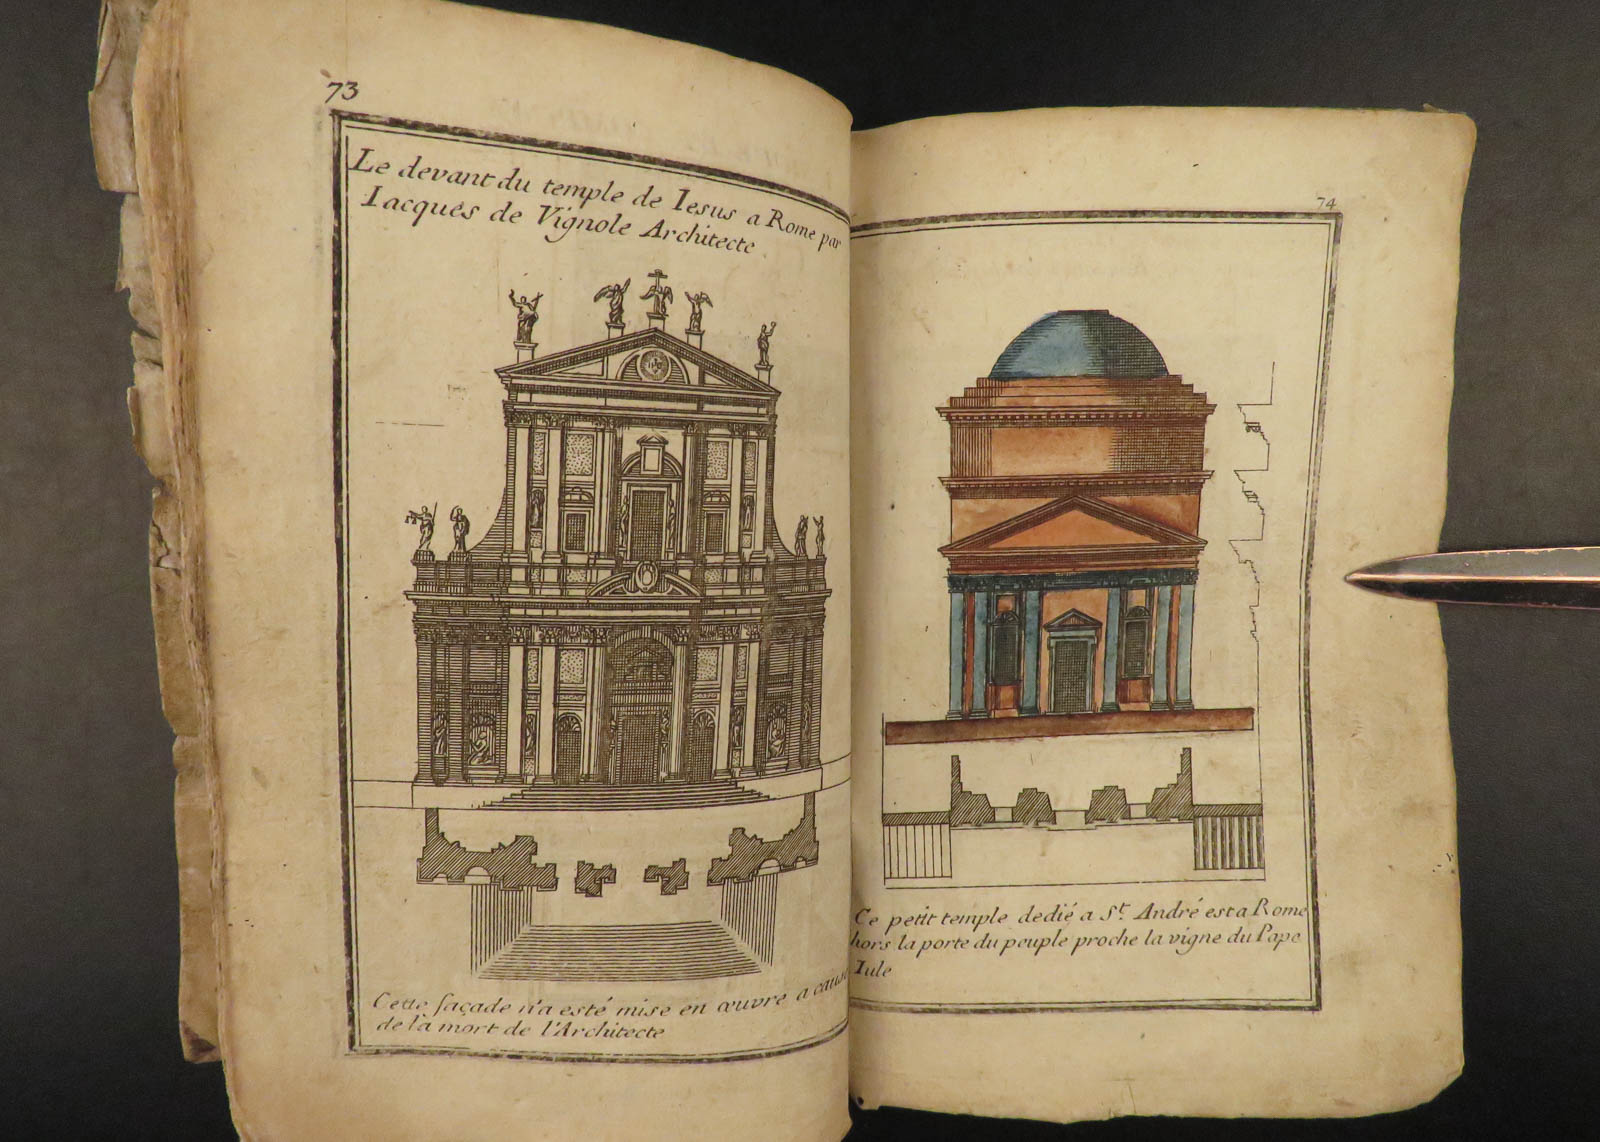 73
Le devant du temple de Iesus a Rome par
Iacques de Vignole Architecte
Cette façade n'a esté mise en œuvre a cause
de la mort de l'Architecte
74
Ce petit temple dedié a St. André est a Rome
hors la porte du peuple proche la vigne du Pape
Iule